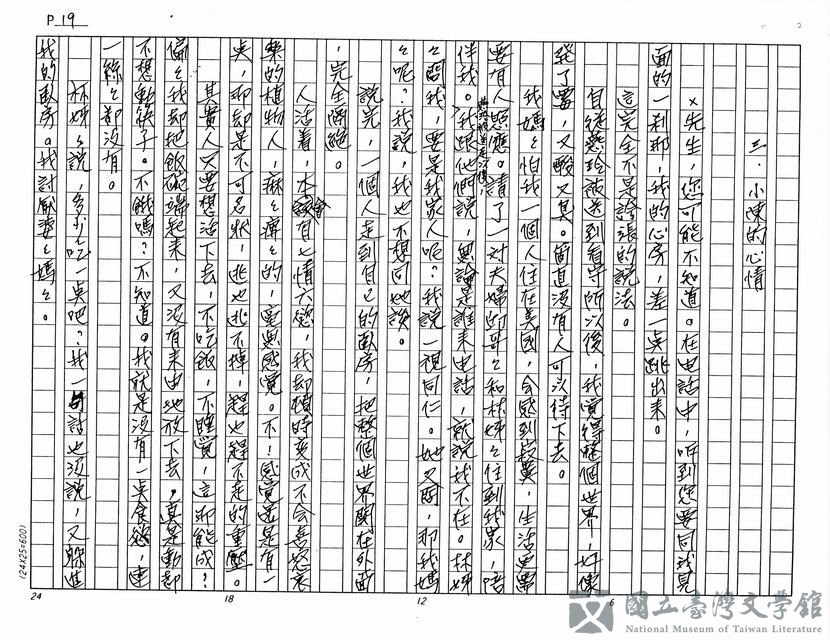 P. 19
三、小陳的心情
×先生，您可能不知道。在電話中，聽到您要同我見
面的一刹那，我的心房，差一點跳出來。
這完全不是誇張的說法。
自從燕玲被送到看守所以後，我覺得整個世界，好像
發了霉，又酸又臭。簡直沒有人可以待下去。
我媽怕我一個人住在美國，會感到寂寞，生活更需
要有人照應。請了一對夫婦哥和林姊住到我家，陪
伴我。我跟他們說，無論是誰來電話，就說我不在。林姊
問我，要是我家人呢？我說一視同仁。她又問，那我媽
呢？我說，我也不想同她談。
說完，一個人走到自己的臥房，把整個世界關在外面
，完全隔絕。
人活着，本會有七情六慾，我却頓時變成不會喜怒哀
樂的植物人，麻痺的，毫無感覺。不！感覺還是有一
點，那却是不可名狀，逃也逃不掉，趕也趕不走的重壓。
其實人只要想活下去，不吃飯，不睡覺，這那能成？
偏我却把飯碗端起來，又沒有來由地放下去。真是動都
不想動筷子。不餓嗎？不知道。我就是沒有一點食慾，連
一絲都沒有。
林姊說，多少吃一點吧？我一句話也沒說，又躲進
我的臥房。我討厭婆媽。
(24X25=600)
24
18
12
6
國立臺灣文學館
National Museum of Taiwan Literature